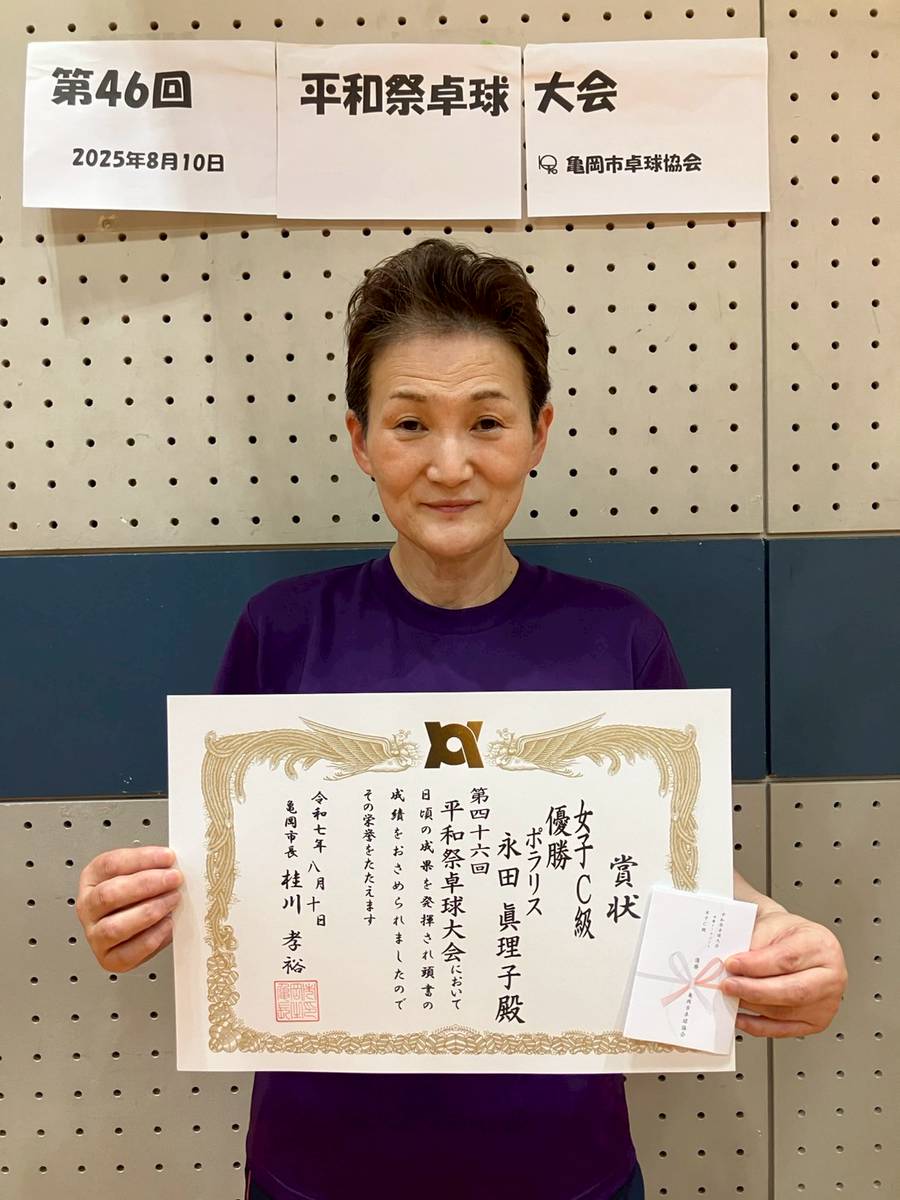 第46回
平和祭卓球
大会
2025年8月10日
亀岡市卓球協会
賞状
女子C級
優勝
ポラリス
永田眞理子殿
第四十六回
平和祭卓球大会において
日頃の成果を発揮され頭書の
成績をおさめられましたので
その栄誉をたたえます
令和七年八月十日
亀岡市長 桂川孝裕
優勝
亀岡市卓球協会